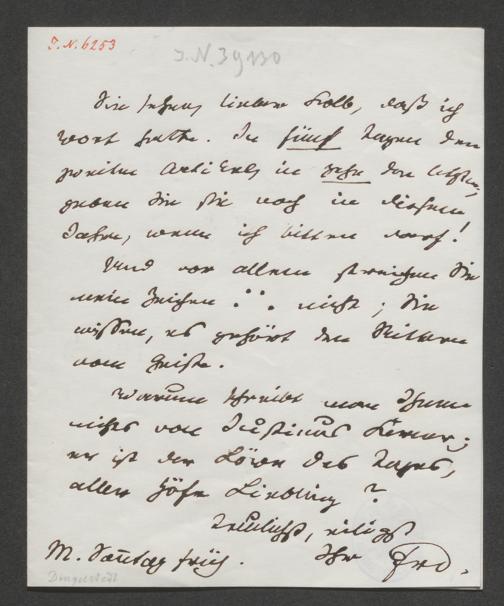 I.N. 6253
I.N. 39130
Sie sehen, lieber Kolb, daß ich
Wort halte. In fünf Tagen den
zweiten Artikel, in zehn den letzten,
geben Sie sie noch in diesem
Jahre, wenn ich bitten darf!
Und vor allem streichen Sie
mein Zeichen nicht; Sie
wissen, es gehört den Rittern
vom Geiste.
Warum schreibt man Ihnen
nichts von Justinus Kerner;
er ist der Löwe des Tages,
aller Höfe Liebling?
Treulichst, eiligst
M. Sontag früh. Ihr Frd.
Dingelstedt